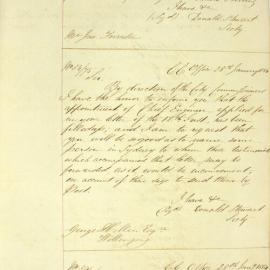 I have &c
(Sigd) Donald Stewart
Secty
Mr Jas
Sir C C Office 28th January
By direction of the City Commissioners
I have the honor to inform you that the
appointment of Chief Engineer applied for
in your letter of the Inst. has been
filled up, and I am to request that
you will be so good as to name some
person in Sydney to whom the testimonials
which accompanied that letter may be
forwarded as it would be inconvenient
on account of their size to send them by
Post.
I have &c
(Sigd) Donald Stewart
Secty
George Esqr
Wollongong
C C Office 28th Jany